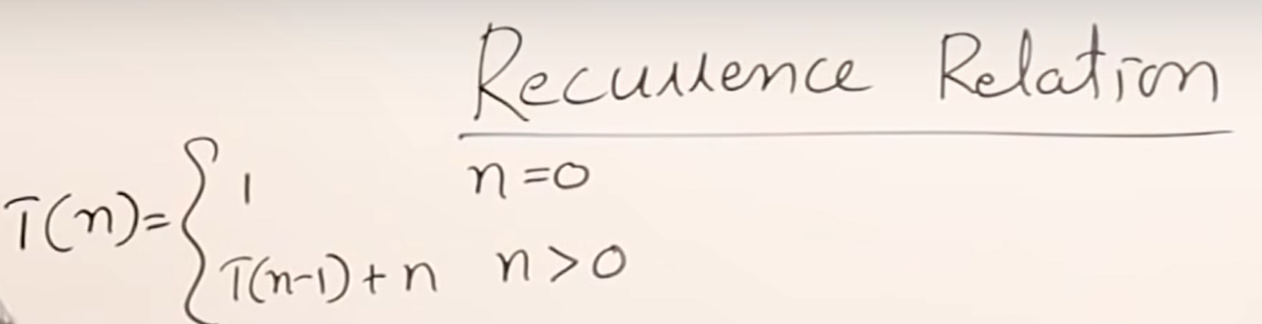 Recurrence Relation
T(n)= { 1 n=0
T(n-1)+n n>0